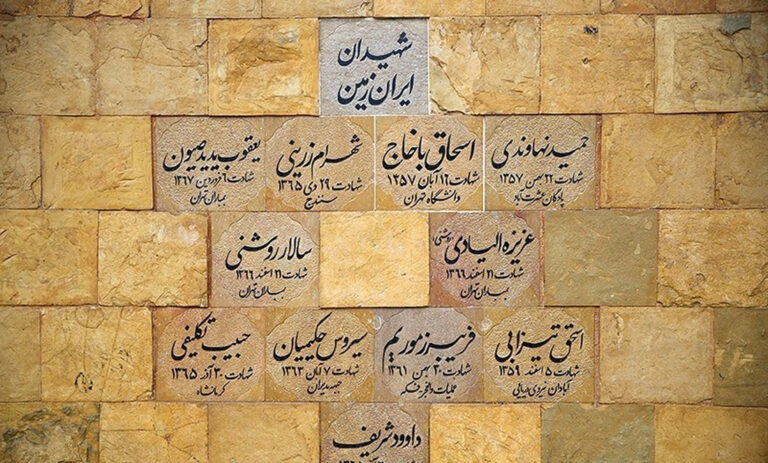 شهیدان
ایران زمین
حمید نهاوندی
شهادت ۲۲ بهمن ۱۳۵۷
پادگان عشرت آباد
اسحاق باخاج
شهادت ۱۲ آبان ۱۳۵۷
دانشگاه تهران
شهرام زرینی
شهادت ۲۹ دی ۱۳۶۵
سنندج
یعقوب یدیدصیون
شهادت ۶ فروردین ۱۳۶۷
بمباران تهران
عزیزه الیادی (روشنی)
شهادت ۲۱ اسفند ۱۳۶۶
بمباران تهران
سالار روشنی
شهادت ۲۱ اسفند ۱۳۶۶
بمباران تهران
اسحق تیزابی
شهادت ۵ اسفند ۱۳۵۹
آبادان نیروی دریایی
فریبرز موریم
شهادت ۲۰ بهمن ۱۳۶۱
عملیات والفجر فکه
سیروس حکیمیان
شهادت ۷ آبان ۱۳۶۳
جبهه مدیران
حبیب تکلیفی
شهادت ۳۰ آذر ۱۳۶۵
کرمانشاه
داوود شریف